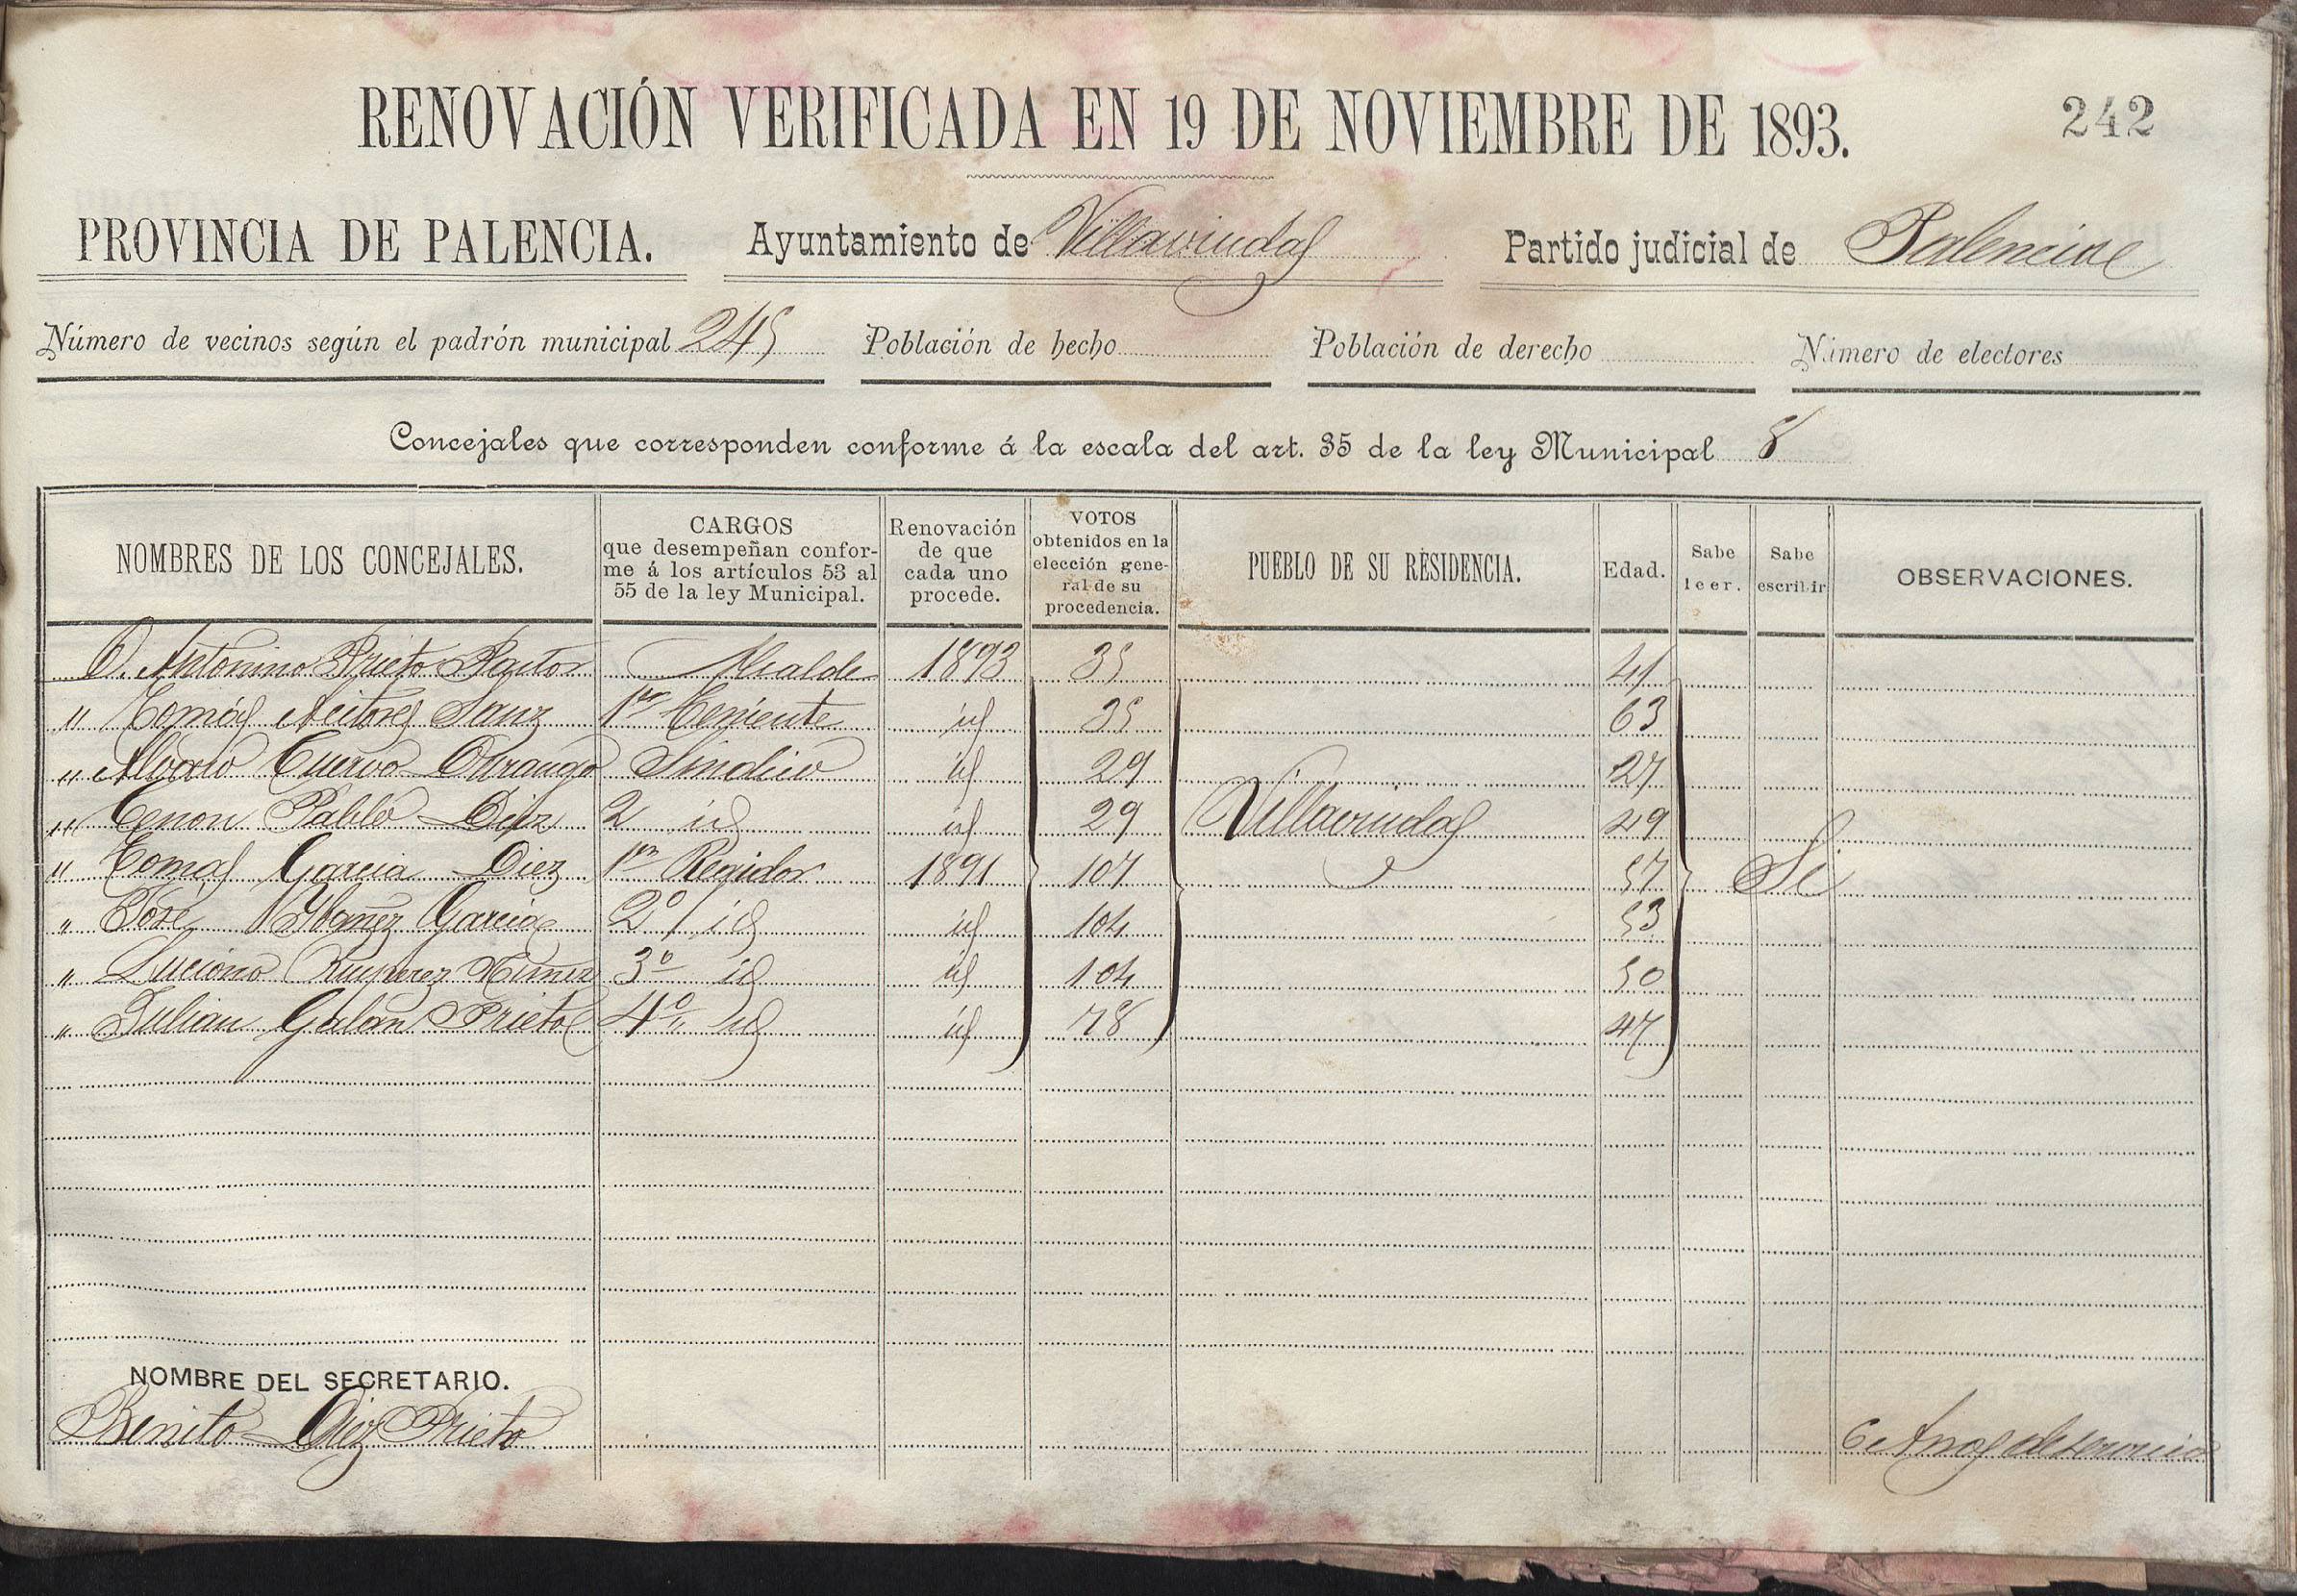 RENOVACIÓN VERIFICADA EN 19 DE NOVIEMBRE DE 1893. 242
PROVINCIA DE PALENCIA. Ayuntamiento de Villaviudas Partido judicial de Palencia
Número de vecinos según el padrón municipal 245 Población de hecho Población de derecho Número de electores
Concejales que corresponden conforme á la escala del art. 35 de la ley Municipal 8
NOMBRES DE LOS CONCEJALES. CARGOS que desempeñan conforme á los artículos 53 al 55 de la ley Municipal. Renovación de que cada uno procede. VOTOS obtenidos en la elección general de su procedencia. PUEBLO DE SU RESIDENCIA. Edad. Sabe leer. Sabe escribir OBSERVACIONES.
D. Antonino Prieto Pastor Alcalde 1893 35 41
" Tomás Acitores Sanz 1er Teniente id 35 63
" Alvaro Cuervo Durango Sindico id 29 27
" Cenon Pablo Diez 2 id id 29 Villaviudas 49
" Tomas Garcia Diez 1er Regidor 1891 107 57 Si
" José Ybañez Garcia 2º id id 104 53
" Luciano Ruiperez 3º id id 104 50
" Julian Galan Prieto 4º id id 78 47
NOMBRE DEL SECRETARIO.
Benito Diez Prieto 6 Años de servicio